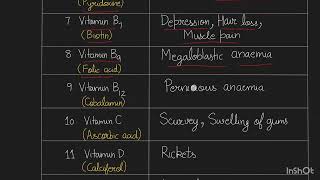 (Pyridoxine)
7 Vitamin B7 Depression, Hair loss,
(Biotin) Muscle pain
8 Vitamin B9 Megaloblastic anaemia
(Folic acid)
9 Vitamin B12 Pernicious anaemia
(Cobalamin)
10 Vitamin C Scurvey, Swelling of gums
(Ascorbic acid)
11 Vitamin D Rickets
(Calciferol)
InShOt